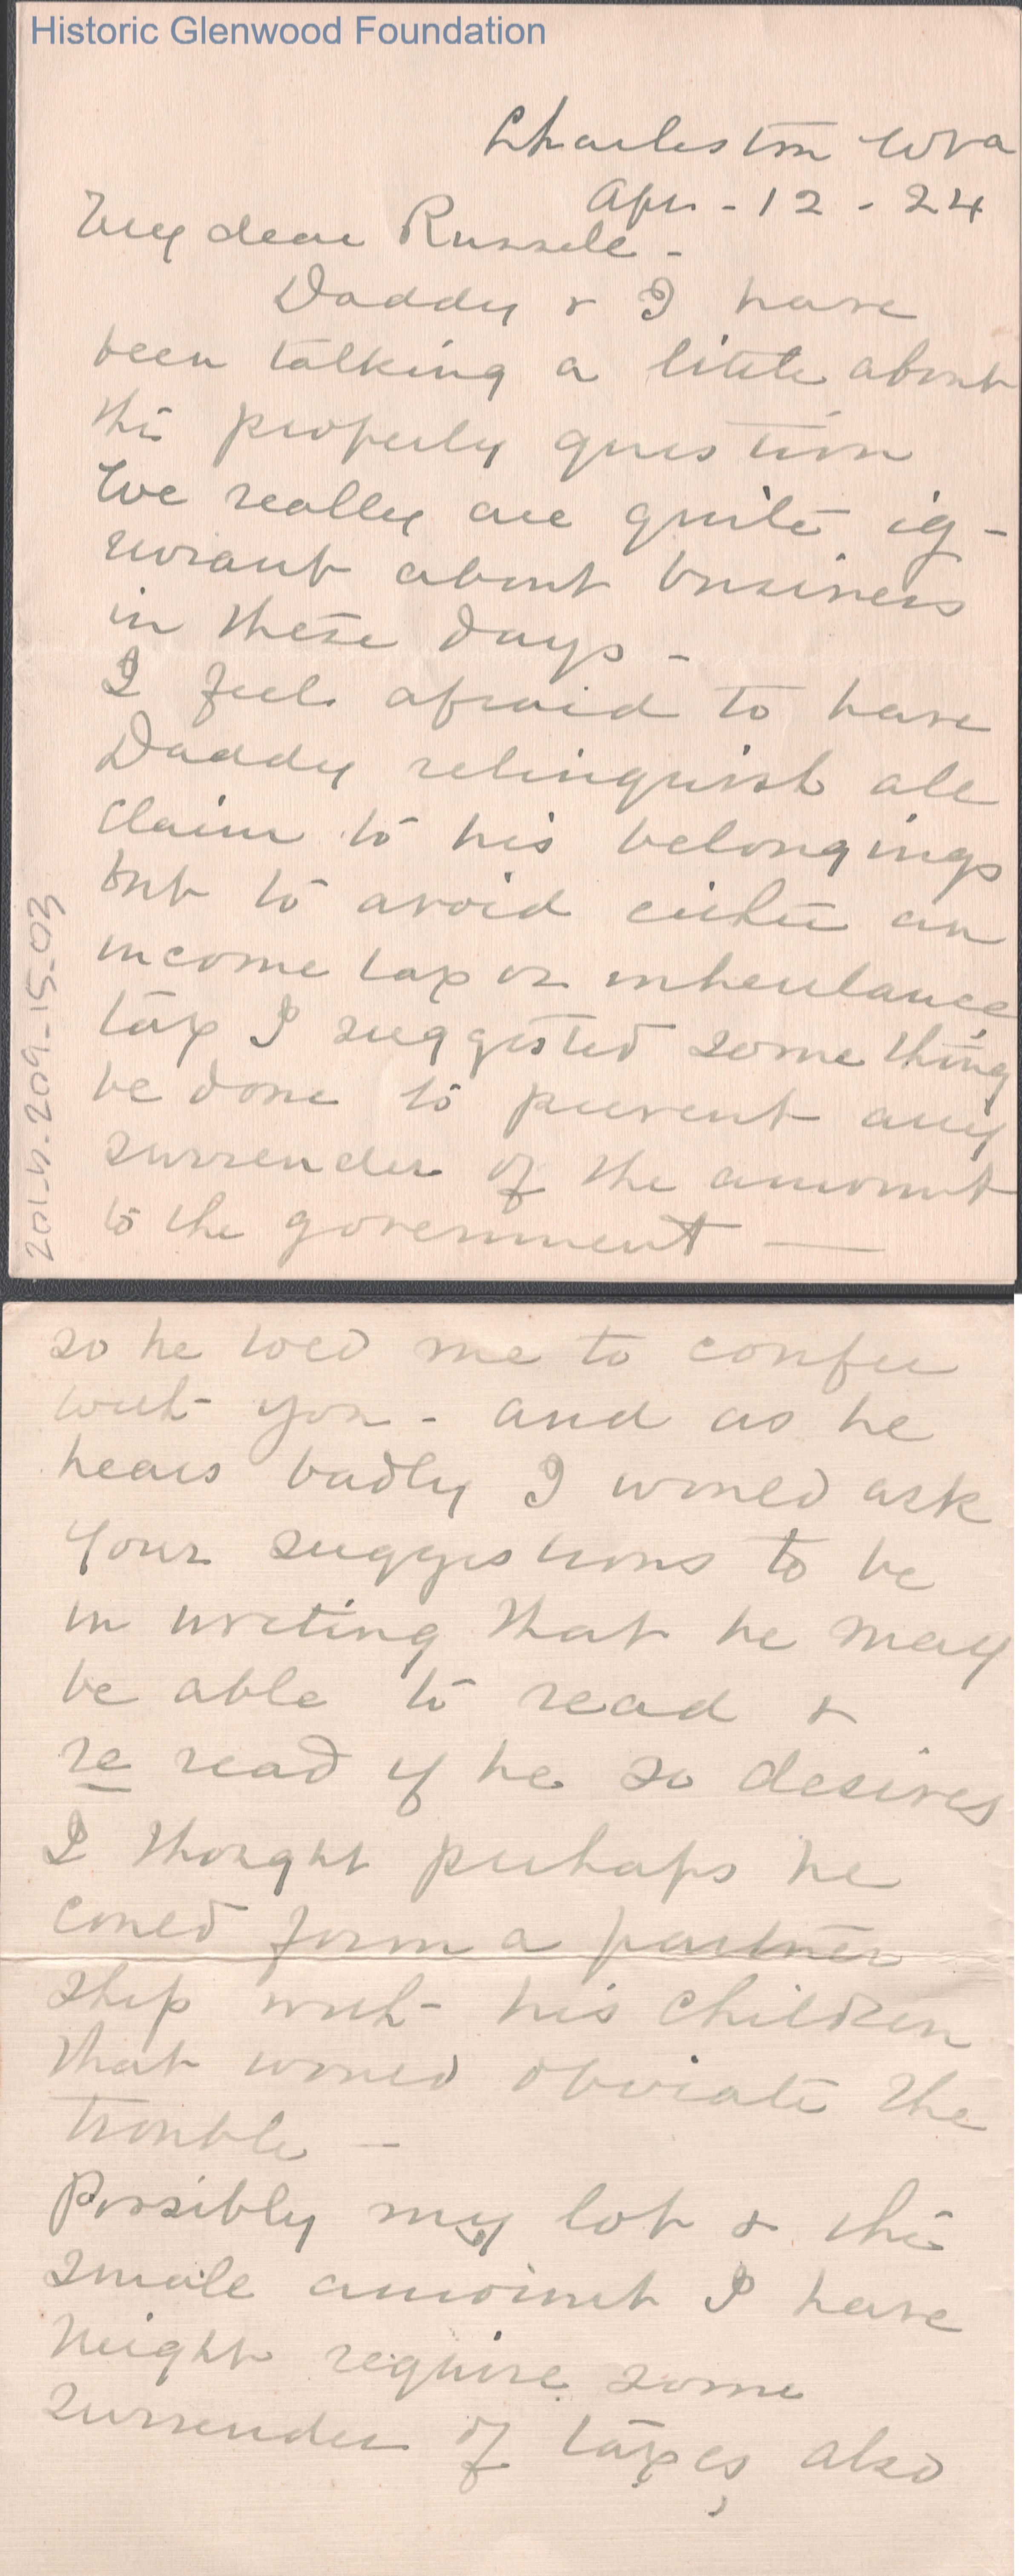 Historic Glenwood Foundation
Charleston WVa
Apr. - 12 - 24
My dear Russell -
Daddy & I have
been talking a little about
the property question
We really are quite ig-
norant about business
in these days -
I feel afraid to have
Daddy relinquish all
claim to his belongings
but to avoid either an
income tax or inheritance
tax I suggested some thing
be done to prevent any
surrender of the amount
to the government —
2014.209.15.03
so he told me to confer
with you - and as he
hears badly I would ask
your suggestions to be
in writing that he may
be able to read &
re read if he so desires
I thought perhaps he
could form a partner
ship with his children
that would obviate the
trouble —
Possibly my lot & the
small amount I have
might require some
surrender of taxes also